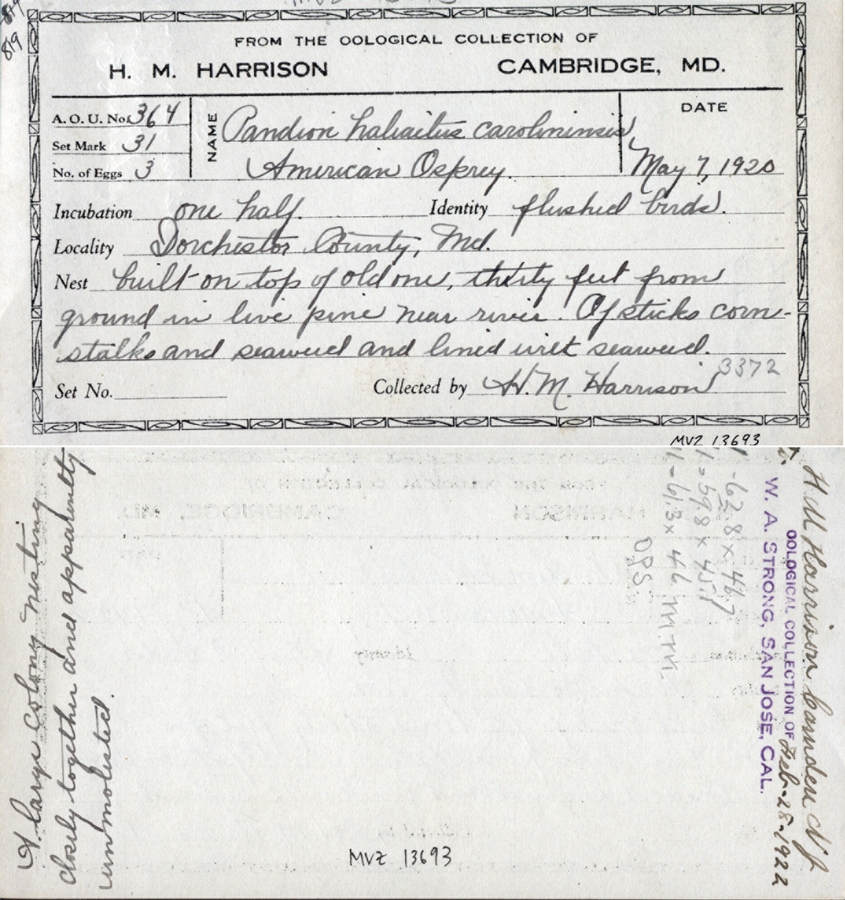 819
819
FROM THE OOLOGICAL COLLECTION OF
H. M. HARRISON CAMBRIDGE, MD.
A. O. U. No. 364
Set Mark 31
No. of Eggs 3
NAME Pandion haliaitus carolininsis
American Osprey.
DATE
May 7, 1920
Incubation one half. Identity flushed birds.
Locality Dorchester County, Md.
Nest built on top of old one, thirty feet from
ground in live pine near river. Of sticks corn-
stalks and seaweed and lined with seaweed.
3372
Set No. Collected by H. M. Harrison
MVZ 13693
A large colony nesting
closely together and apparently
unmolested.
MVZ 13693
62.8 x 46.7
59.8 x 45.1
61.3 x 46
OPS
OOLOGICAL COLLECTION OF
W. A. STRONG, SAN JOSE, CAL.
H M Harrison Camden NJ
Feb-28-1922